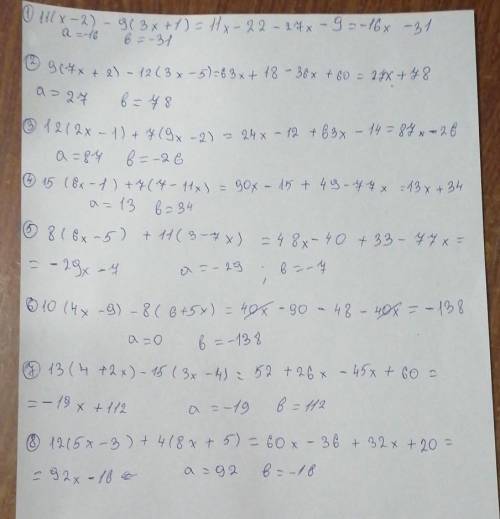 ① 11(x-2) - 9(3x+1) = 11x - 22 - 27x - 9 = -16x - 31
a = -16 в = -31
② 9(7x + 2) - 12(3x - 5) = 63x + 18 - 36x + 60 = 27x + 78
a = 27 в = 78
③ 12(2x - 1) + 7(9x - 2) = 24x - 12 + 63x - 14 = 87x - 26
a = 87 в = -26
④ 15(6x - 1) + 7(7 - 11x) = 90x - 15 + 49 - 77x = 13x + 34
a = 13 в = 34
⑤ 8(6x - 5) + 11(3 - 7x) = 48x - 40 + 33 - 77x =
= -29x - 7 a = -29 ; в = -7
⑥ 10(4x - 9) - 8(6 + 5x) = 40x - 90 - 48 - 40x = -138
a = 0 в = -138
⑦ 13(4 + 2x) - 15(3x - 4) = 52 + 26x - 45x + 60 =
= -19x + 112 a = -19 в = 112
⑧ 12(5x - 3) + 4(8x + 5) = 60x - 36 + 32x + 20 =
= 92x - 16 a = 92 в = -16